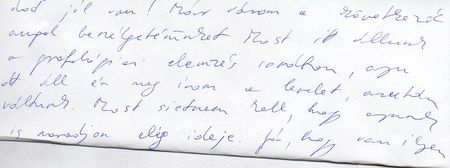 dod jól van! Már várom a következő
angol beszélgetésünket. Most itt állunk
a profilógiai elemzés sorában, apu
ott áll én meg írom a levelet, azután
váltunk. Most sietnem kell, hogy apunak
is maradjon elég ideje. Jó, hogy van ilyen